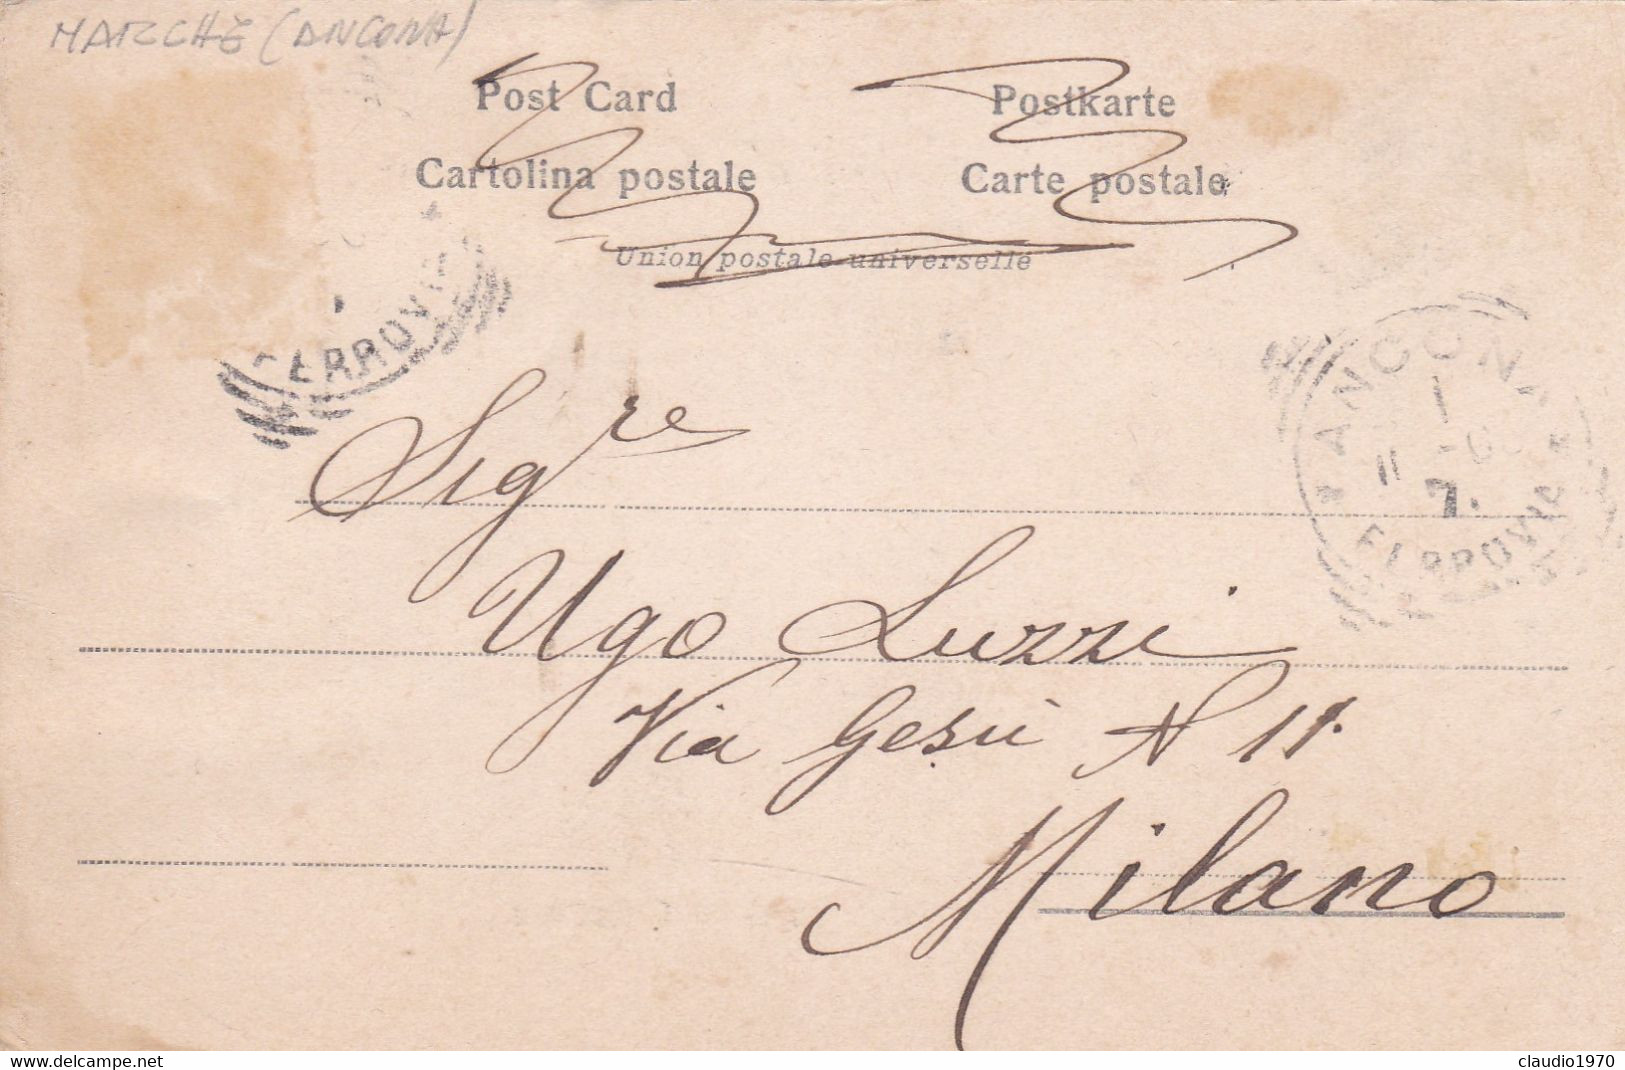 MARCHE (ANCONA)
Post Card Postkarte
Cartolina postale Carte postale
Union postale universelle
FERROVIA
ANCONA
11
7.
FERROVIA
Sig.re
Ugo Luzzi
Via Gesù N 11.
Milano
delcampe.net
claudio1970